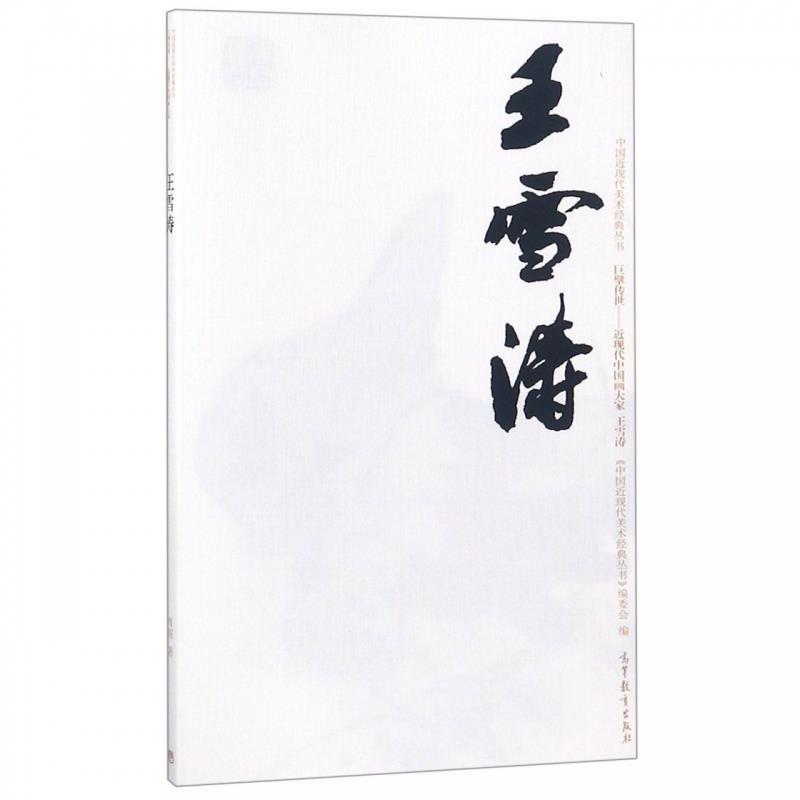 王雪涛
中国近现代美术经典丛书
巨擘传世——近现代中国画大家 王雪涛
《中国近现代美术经典丛书》编委会 编
高等教育出版社
王雪涛